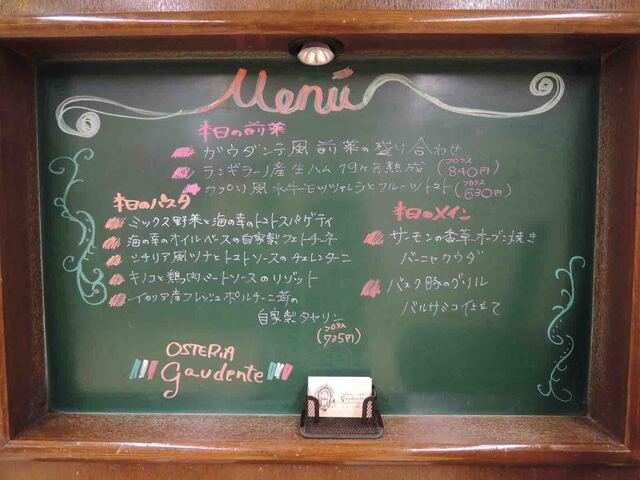 Menú
本日の前菜
ガウダンテ風 前菜の盛り合わせ
ランギラーノ産生ハム 19ヶ月熟成 (プラス 840円)
カプリ風 水牛モッツァレラとフルーツトマト (プラス 630円)
本日のパスタ
ミックス野菜と海の幸のトマトスパゲティ
海の幸のオイルベースの自家製フェトチーネ
シチリア風ツナとトマトソースのチェレンターニ
キノコと鶏肉ミートソースのリゾット
イタリア産フレッシュポルチーニ茸の
自家製タヤリン
(プラス 735円)
本日のメイン
サーモンの香草オーブン焼き
バーニャカウダ
バスク豚のグリル
バルサミコ仕立て
OSTERIA
gaudente